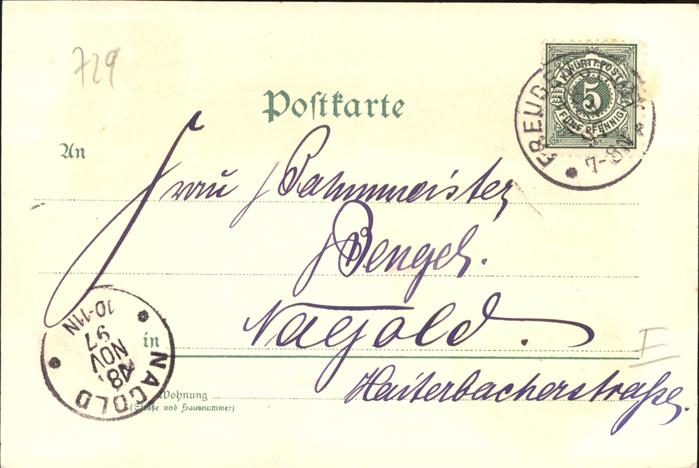 729
Postkarte
K.WÜRTT.POST
5
FÜNF PFENNIG
FREUD
7-8N
An
Frau Bahnmeister
Bengel.
in Nagold.
I
Wohnung Haiterbacherstraße.
(Straße und Hausnummer)
NAGOLD
NOV
97
10-11N